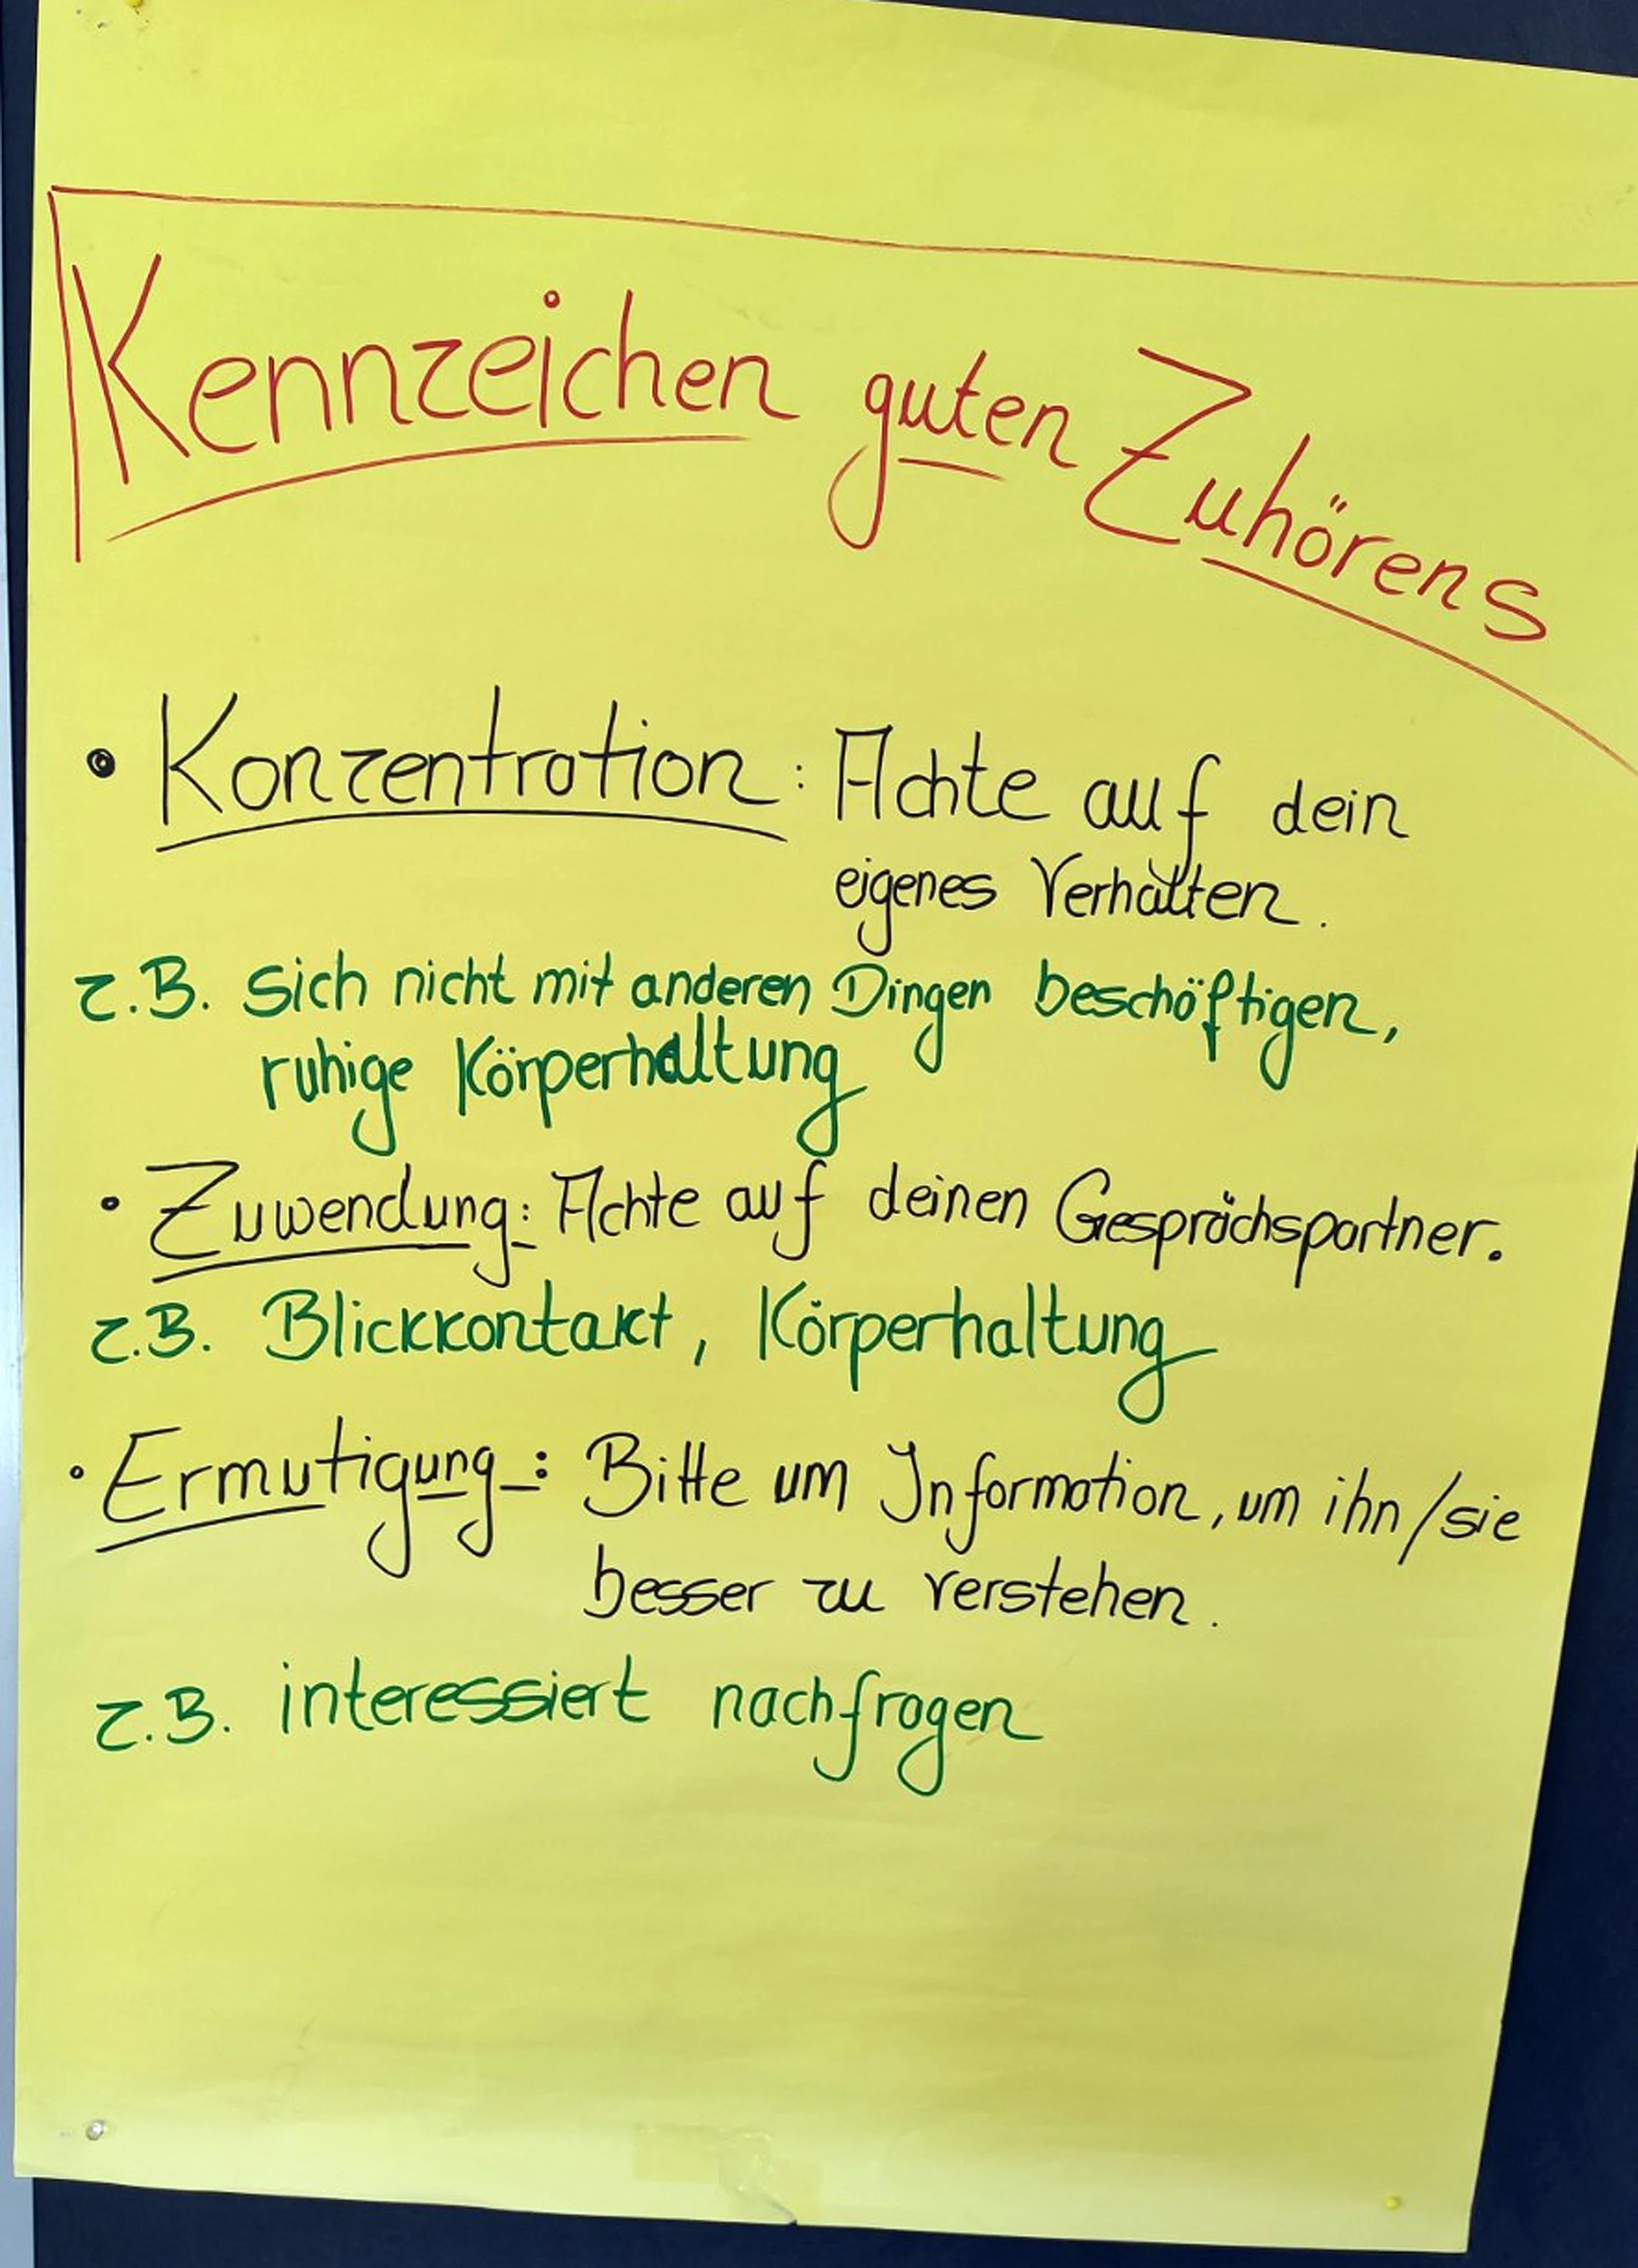 Kennzeichen guten Zuhörens
• Konzentration: Achte auf dein
eigenes Verhalten.
z.B. sich nicht mit anderen Dingen beschäftigen,
ruhige Körperhaltung
• Zuwendung: Achte auf deinen Gesprächspartner.
z.B. Blickkontakt, Körperhaltung
• Ermutigung: Bitte um Information, um ihn/sie
besser zu verstehen.
z.B. interessiert nachfragen